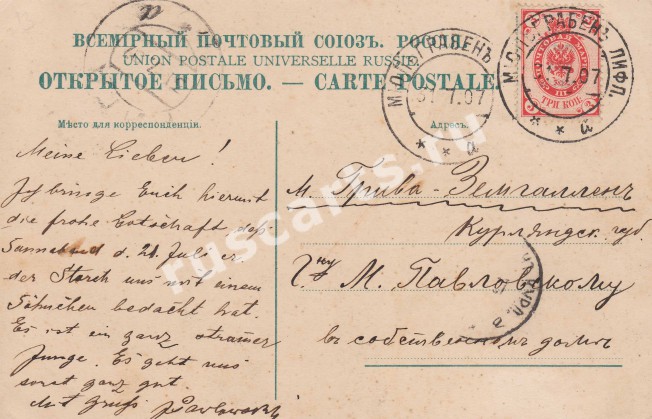 ВСЕМІРНЫЙ ПОЧТОВЫЙ СОЮЗЪ. РОССІЯ.
UNION POSTALE UNIVERSELLE RUSSIE.
ОТКРЫТОЕ ПИСЬМО. — CARTE POSTALE.
Мѣсто для корреспонденціи.
Адресъ.
Meine Lieben!
Ich bringe Euch hiermit
die frohe Botschaft, daß
Sonnabend d. 21. Juli
der Storch uns mit einem
Söhnchen bedacht hat.
Es ist ein ganz strammer
Junge. Es geht uns
sonst ganz gut.
Mit Gruß Pawlowsky
м. Грива-Земгалленъ
Курляндск. губ.
Г-ну М. Павловскому
въ собственномъ домѣ
М. ОЛ. ГРАБЕНЪ
7.07
* * а
М. ОЛ. ГРАБЕНЪ ЛИФЛ.
7.07
* * з
ТРИ КОП.
КУРЛ.
ruscards.ru